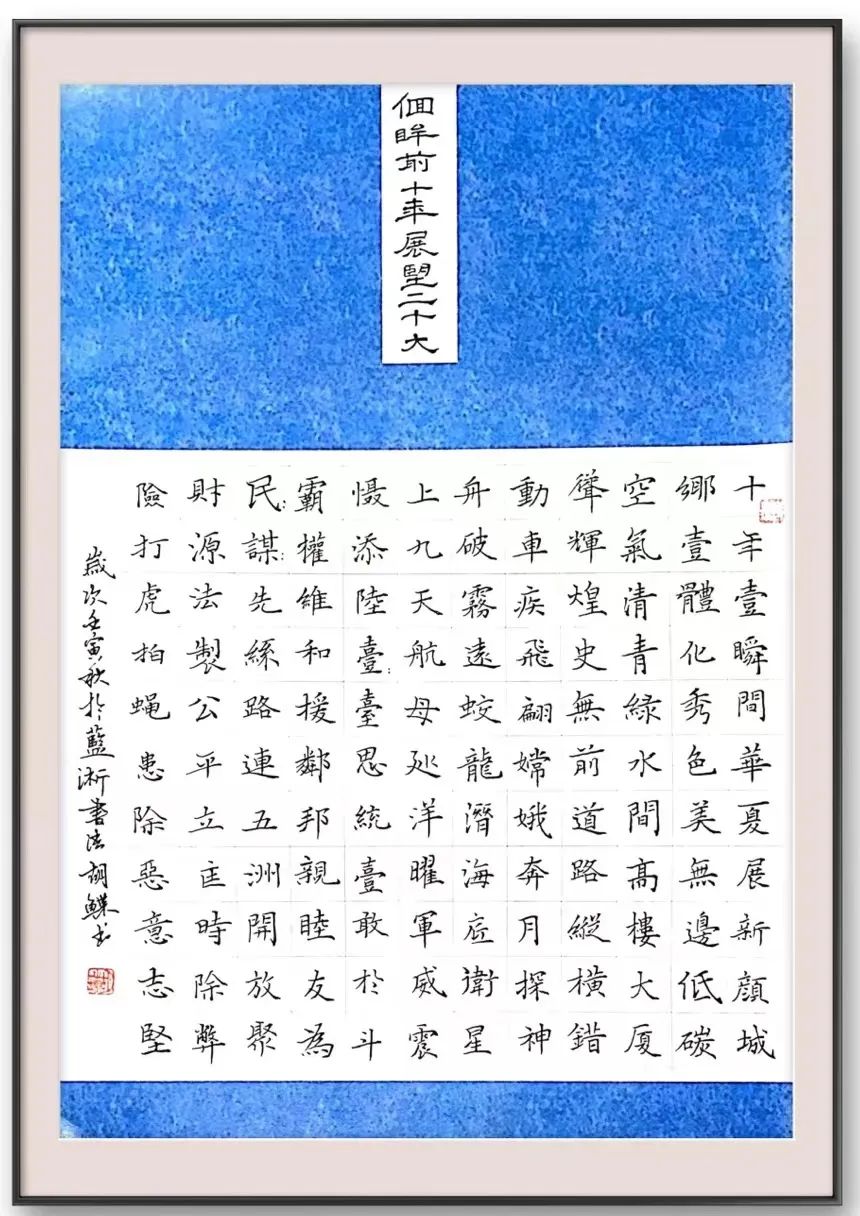 佪眸前十年展望二十大
十年壹瞬間華夏展新顔城
鄉壹體化秀色美無邊低碳
空氣清青綠水間高樓大厦
聳輝煌史無前道路縱橫錯
動車疾飛翩嫦娥奔月探神
舟破霧遠蛟龍潛海底衛星
上九天航母巡洋曜軍威震
慑添陸臺:臺思統壹敢於斗
霸權維和援鄰邦親睦友為
民:謀:先絲路連五洲開放聚
財源法製公平立匡時除弊
險打虎拍蝇患除惡意志堅
歲次壬寅秋於藍淅書法胡鰈書